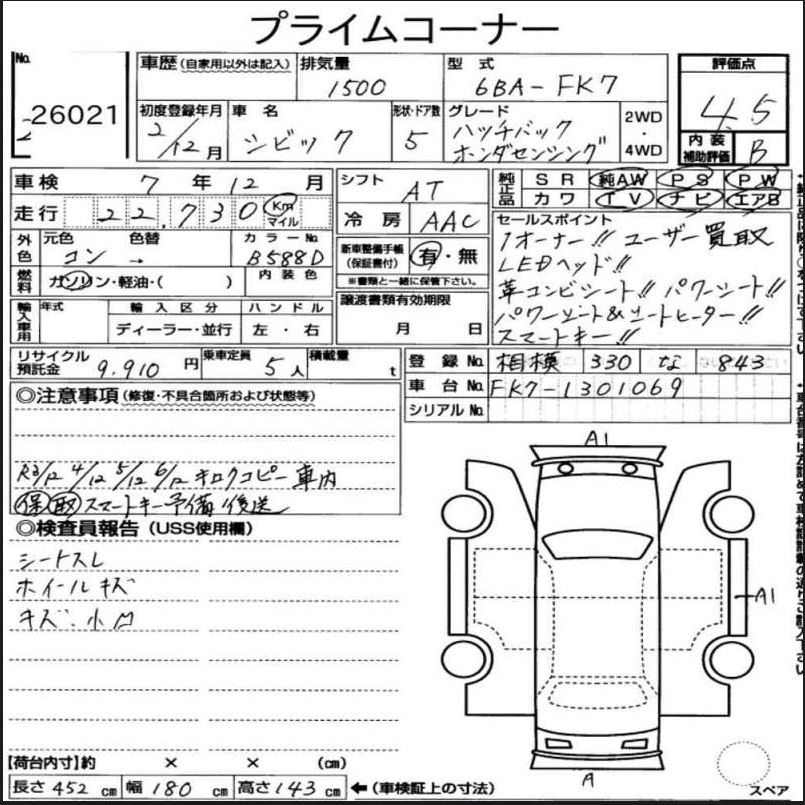 プライムコーナー
No.
26021
2
車歴 (自家用以外は記入)
排気量
1500
型式
6BA-FK7
評価点
4.5
初度登録年月
2/12月
車名
シビック
形状・ドア数
5
グレード
ハッチバック
ホンダセンシング
2WD
・
4WD
内装
補助評価
B
車検 7年12月
走行 22,730 Km
マイル
シフト AT
冷房 AAC
純正品
SR 純AW PS PW
カワ TV ナビ エアB
外色
元色 色替 カラーNo.
コン → B588D
新車整備手帳
(保証書付)
有・無
※書類と一緒に保管下さい。
燃料
ガソリン・軽油・( )
内装色
セールスポイント
1オーナー!! ユーザー買取
LEDヘッド!!
革コンビシート!! パワーシート!!
パワーシート&シートヒーター!!
スマートキー!!
輸入車用
年式
輸入区分
ハンドル
ディーラー・並行
左・右
譲渡書類有効期限
月 日
リサイクル
預託金
9.910円
乗車定員
5人
積載量
t
登録No. 相模 330 な 843
車台No. FK7-1301069
シリアルNo.
◎注意事項 (修復・不具合箇所および状態等)
R3/12 4/12 5/12 6/12 キロクコピー車内
保 取 スマートキー予備 後送
◎検査員報告 (USS使用欄)
シートスレ
ホイールキズ
キズ、小凹
A1
A1
A
スペア
【荷台内寸】約 × × (cm)
長さ 452 cm 幅 180 cm 高さ 143 cm ←(車検証上の寸法)